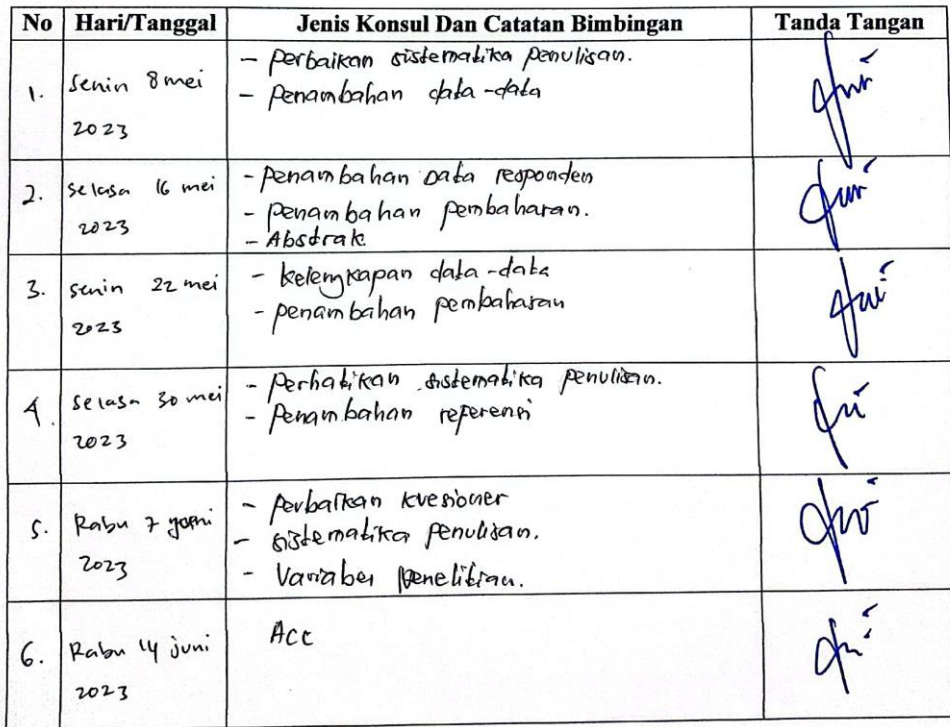 No Hari/Tanggal Jenis Konsul Dan Catatan Bimbingan Tanda Tangan
1. Senin 8 mei 2023 - Perbaikan sistematika penulisan.
- Penambahan data-data
2. Selasa 16 mei 2023 - Penambahan Data responden
- Penambahan pembahasan.
- Abstrak
3. Senin 22 mei 2023 - Kelengkapan data-data
- penambahan pembahasan
4. Selasa 30 mei 2023 - Perhatikan sistematika penulisan.
- Penambahan referensi
5. Rabu 7 2023 - Perbaikan kuesioner
- sistematika penulisan.
- Variabel penelitian.
6. Rabu 14 juni 2023 Acc